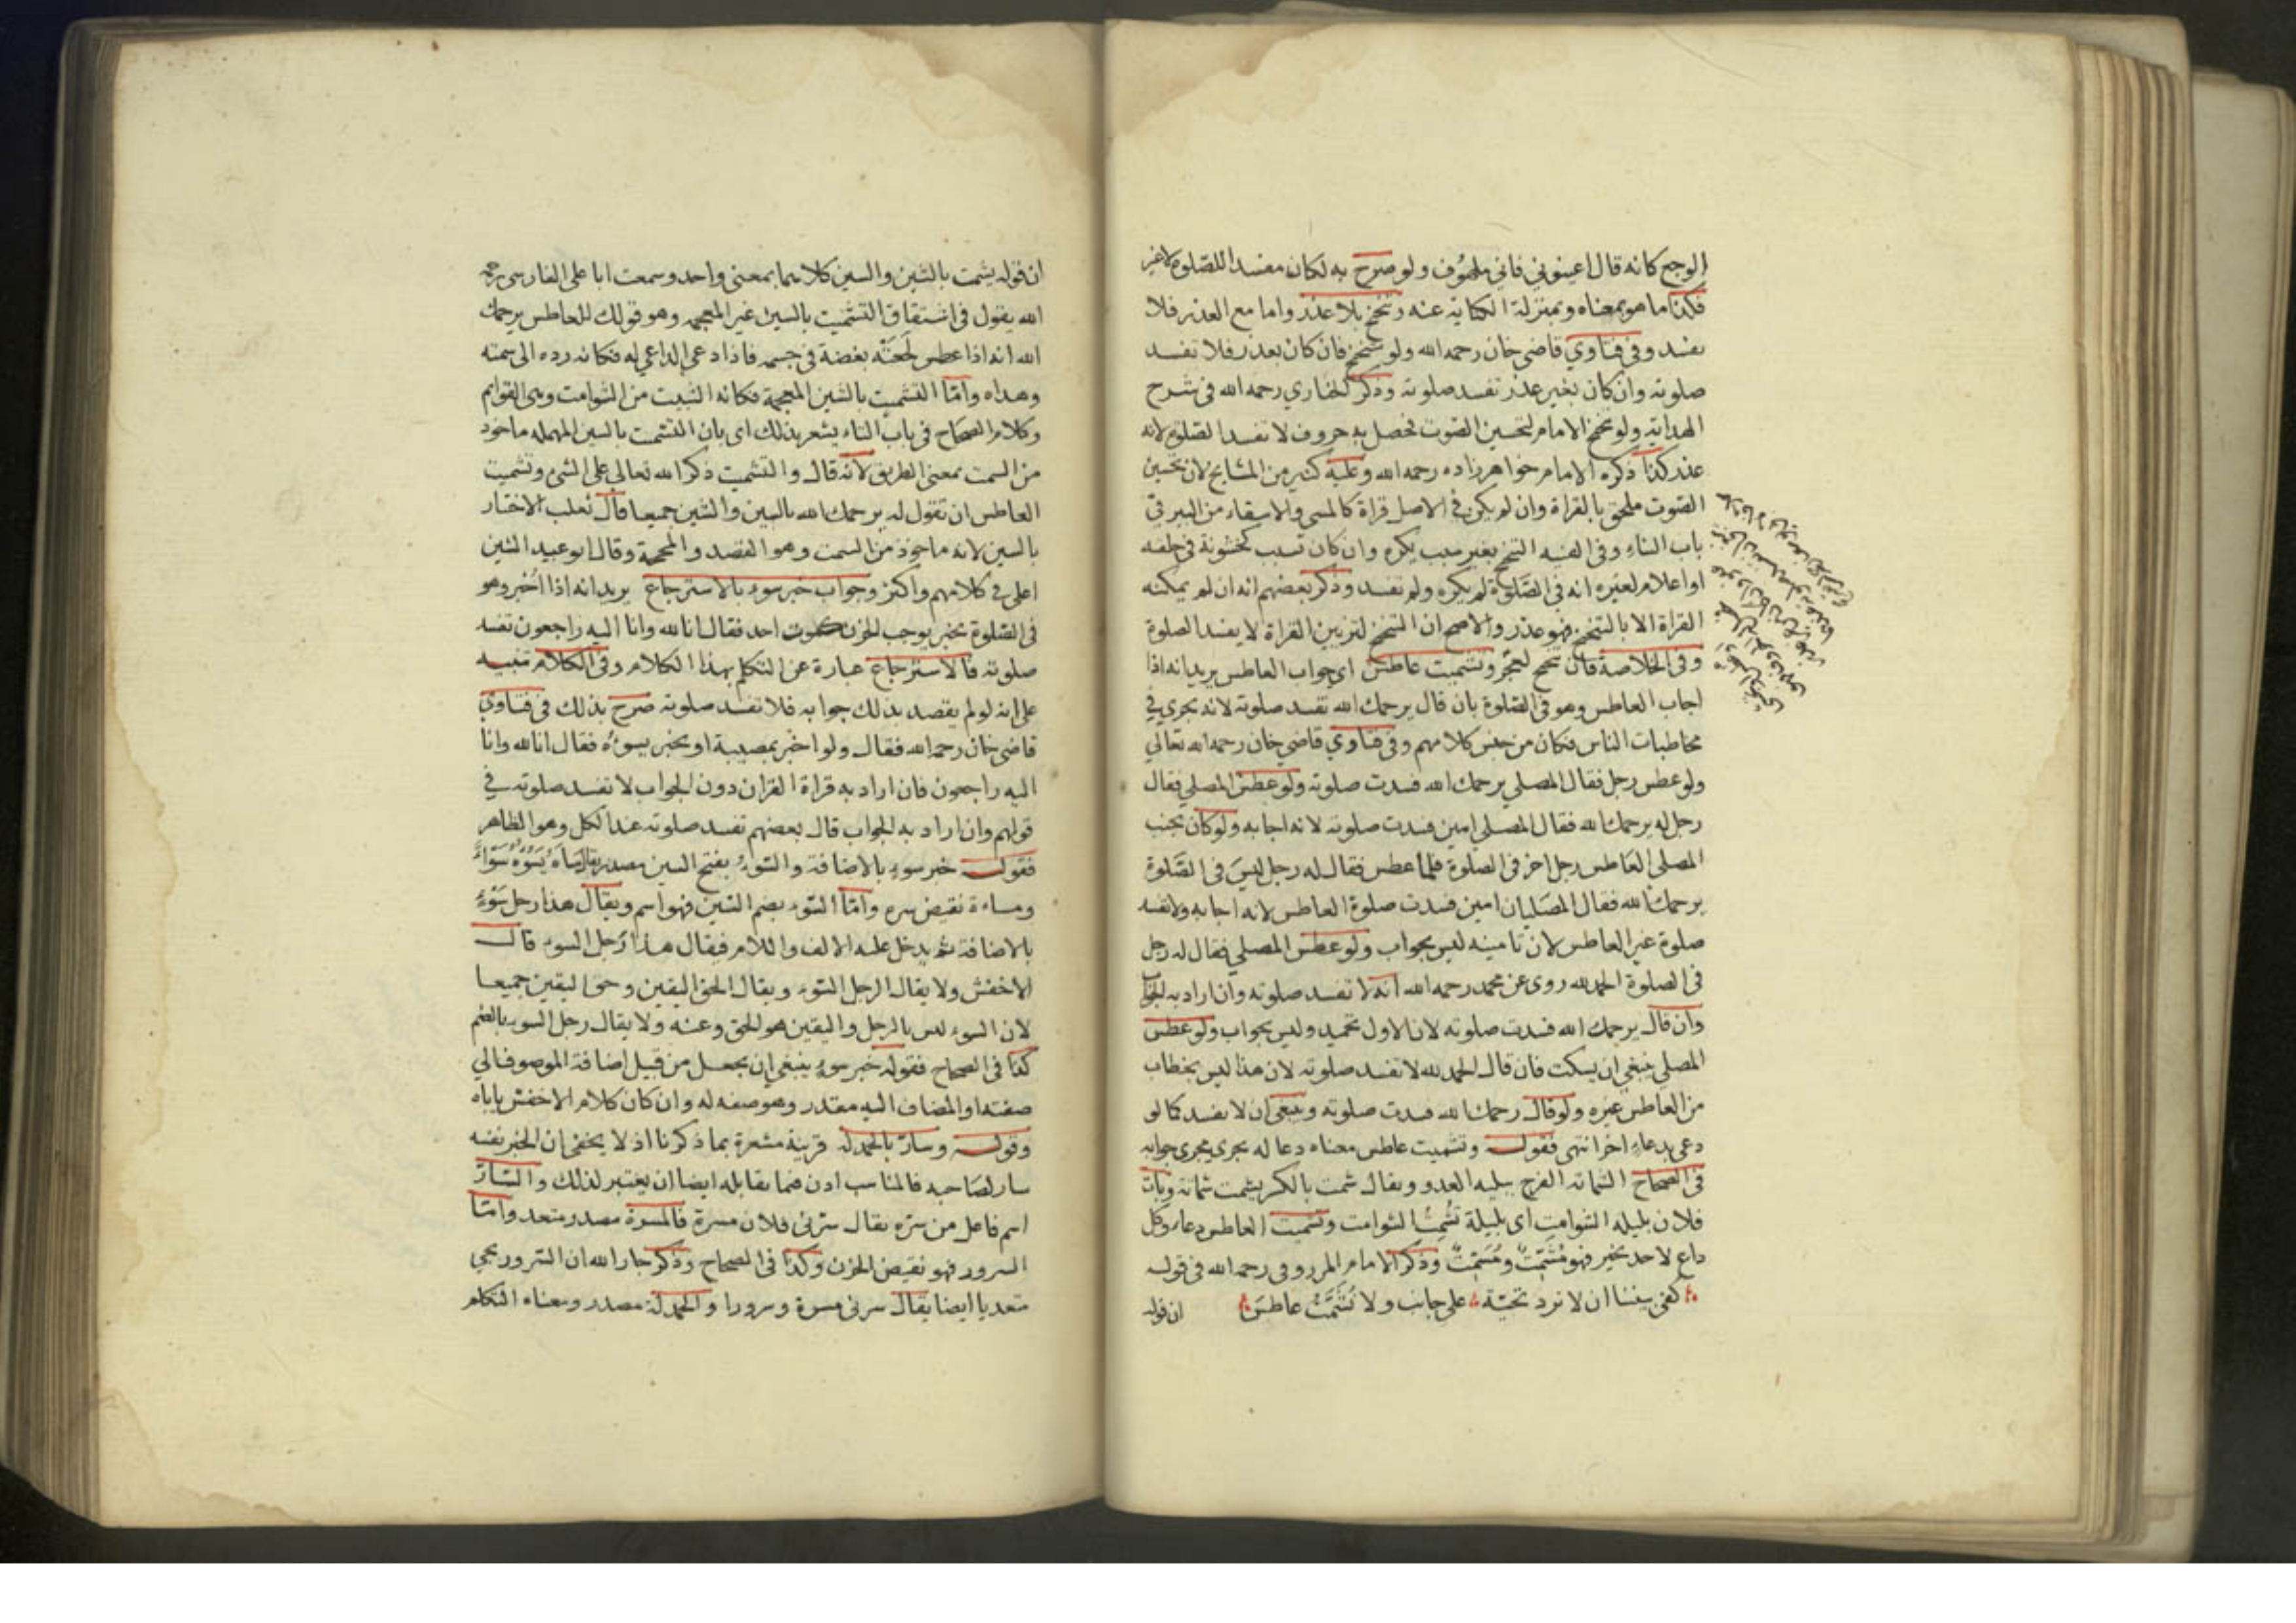 الوجع كانه قال اعينوني فاني ملهوف ولو صرح به لكان مفسدا للصلوة لا غير
فكذا ما هو بمعناه وبمنزلة الكناية عنه وتنحنح بلا عذر واما مع العذر فلا
تفسد وفي فتاوي قاضي خان رحمه الله ولو تنحنح فان كان بعذر فلا تفسد
صلوته وان كان بغير عذر تفسد صلوته وذكر رحمه الله في شرح
الهداية ولو تنحنح الامام لتحسين الصوت فحصل به حروف لا تفسد الصلوة لانه
عذر كذا ذكره الامام خواهر زاده رحمه الله وعليه كثير من المشايخ لان تحسين
الصوت ملحق بالقراة وان لم يكن في الاصل قراة كالمشي والاستقاء من البير في
باب البناء وفي القنيه التنحنح بغير سبب يكره وان كان لسبب كخشونة في حلقه
او اعلام لغيره انه في الصلوة لم يكره ولم تفسد وذكر بعضهم انه ان لم يمكنه
القراة الا بالتنحنح فهو عذر والاصح ان التنحنح لتزيين القراة لا يفسد الصلوة
وفي الخلاصة فان تنحنح وتشميت عاطس اي جواب العاطس يريد انه اذا
اجاب العاطس وهو في الصلوة بان قال يرحمك الله تفسد صلوته لانه يجري في
مخاطبات الناس فكان من جنس كلامهم وفي فتاوي قاضي خان رحمه الله تعالي
ولو عطس رجل فقال المصلي يرحمك الله فسدت صلوته ولو عطس المصلي فقال
رجل له يرحمك الله فقال المصلي امين فسدت صلوته لانه اجابه ولو كان بجنب
المصلي العاطس رجل اخر في الصلوة فلما عطس فقال له رجل ليس في الصلوة
يرحمك الله فقال المصليان امين فسدت صلوة العاطس لانه اجابه ولا تفسد
صلوة غير العاطس لان تامينه ليس بجواب ولو عطس المصلي فقال له رجل
في الصلوة الحمد لله روى عن محمد رحمه الله انه لا تفسد صلوته وان اراد به الجواب
وان قال يرحمك الله فسدت صلوته لان الاول تحميد وليس بجواب ولو عطس
المصلي ينبغي ان يسكت فان قال الحمد لله لا تفسد صلوته لان هذا ليس بخطاب
من العاطس غيره ولو قال رحمك الله فسدت صلوته وينبغي ان لا تفسد كما لو
دعي بدعاء اخر انتهى فقوله وتشميت عاطس معناه دعا له يجري مجري جوابه
في الصحاح الشماتة الفرح ببلية العدو ويقال شمت بالكسر يشمت شماتة وبات
فلان بليلة الشوامت اي بليلة تُشمِت الشوامت وتشميت العاطس دعاء وكل
داع لاحد بخير فهو مُشَمِّتٌ ومُسَمِّتٌ وذكر الامام المرزوقي رحمه الله في قوله
كفي بيننا ان لا نرد تحيّة على جانب ولا نُشَمَّتُ عاطس ان قوله
ان قوله يشمت بالشين والسين كلاهما بمعنى واحد وسمعت ابا علي الفارسي رحمه
الله يقول في اشتقاق التشميت بالسين غير المعجمه وهو قولك للعاطس يرحمك
الله انه اذا عطس لحقته بغضة في جسمه فاذا دعى الداعي له فكانه رده الى سمته
وهداه وامّا التشميت بالشين المعجمة فكانه التثبيت من الشوامت وهي القوايم
وكلام الصحاح في باب التاء يشعر بذلك اي بان التشمت بالسين المهمله ماخوذ
من السمت بمعنى الطريق لانه قال والتشميت ذكر الله تعالى على الشيء وتشميت
العاطس ان تقول له يرحمك الله بالسين والشين جميعا قال ثعلب الاختار
بالسين لانه ماخوذ من السمت وهو القصد والمحجة وقال ابو عبيد الشين
اعلى في كلامهم واكثر وجواب خبر سوء بالاسترجاع يريد انه اذا اُخبر وهو
في الصلوة بخبر يوجب الحزن كموت احد فقال انا لله وانا اليه راجعون تفسد
صلوته فالاسترجاع عبارة عن التكلم بهذا الكلام وفي الكلام تنبيه
على انه لو لم يقصد بذلك جوابه فلا تفسد صلوته صرح بذلك في فتاوي
قاضي خان رحمه الله فقال ولو اخبر بمصيبة او بخبر يسوءه فقال انا لله وانا
اليه راجعون فان اراد به قراة القران دون الجواب لا تفسد صلوته في
قولهم وان اراد به الجواب قال بعضهم تفسد صلوته عند الكل وهو الظاهر
فقوله خبر سوء بالاضافة والسَّوء بفتح السين مصدر يقال سَاءَهُ يَسُوْءُهُ سَوْاءً
ومساءة نقيض سره وامّا السُّوء بضم السّين فهو اسم ويقال هذا رجل سَوْءٍ
بالاضافة ثم يدخل عليه الالف واللام فيقال هذا رجل السوء قال
الاخفش ولا يقال الرجل السّوء ويقال الحق اليقين وحق اليقين جميعا
لان السوء ليس بالرجل واليقين هو الحق وعنه ولا يقال رجل السوء بالضم
كذا في الصحاح فقوله خبر سوء ينبغي ان يجعل من قبيل اضافة الموصوف الي
صفته او المضاف اليه مقدر وهو صفه له وان كان كلام الاخفش ياباه
وقوله وسارّ بالحمدلة قرينة مشعرة بما ذكرنا اذ لا يخفى ان الخبر نفسه
سار لصاحبه فالمناسب اذن فيما يقابله ايضا ان يعتبر لذلك والسّارّ
اسم فاعل من سرّه يقال سرّني فلان مسرة فالمسرة مصدر متعد وامّا
السرور فهو نقيض الحزن وكذا في الصحاح وذكر جار الله ان السّرور يجي
متعديا ايضا يقال سرني مسرة وسرورا والحمدلة مصدر ومعناه التكلم